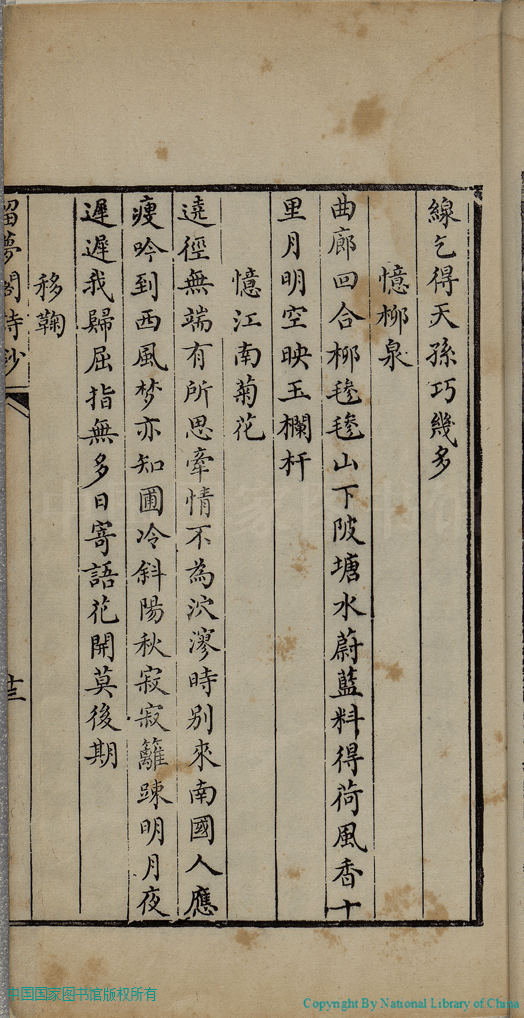 線乞得天孫巧幾多
憶栁泉
曲廊回合栁毿毿山下陂塘水蔚藍料得荷風香十
里月明空映玉欄杆
憶江南菊花
遶徑無端有所思牽情不為泬漻時別來南國人應
瘦吟到西風梦亦知圃冷斜陽秋寂寂籬踈明月夜
遲遲我歸屈指無多日寄語花開莫後期
移鞠
留夢閣詩鈔
十三
中国国家图书馆版权所有
Copyright By National Library of China